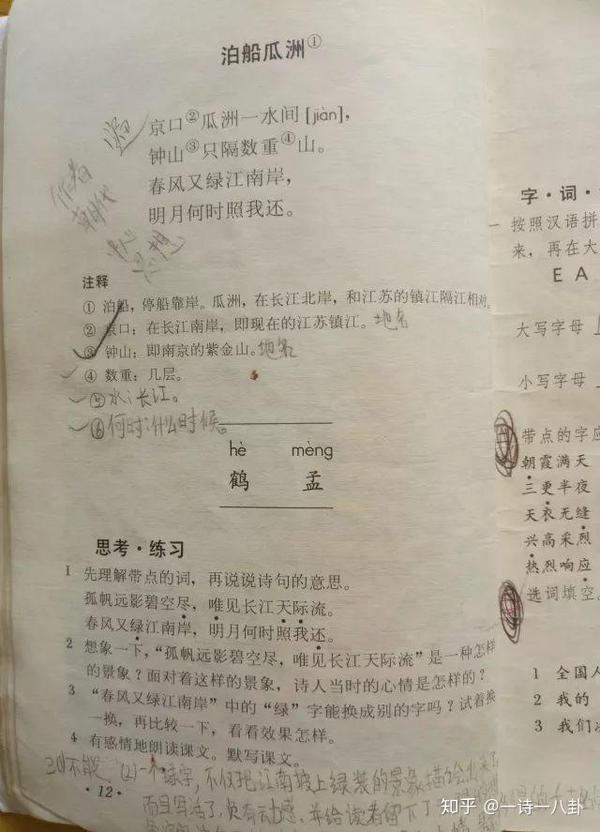 泊船瓜洲①
京口②瓜洲一水间[jiàn]，
钟山③只隔数重④山。
春风又绿江南岸，
明月何时照我还。
作者
思想
注释
① 泊船，停船靠岸。瓜洲，在长江北岸，和江苏的镇江隔江相对。
② 京口：在长江南岸，即现在的江苏镇江。地名
③ 钟山：即南京的紫金山。地名
④ 数重：几层。
⑤水：长江。
⑥何时：什么时候。
hè mèng
鹤 孟
思考·练习
1 先理解带点的词，再说说诗句的意思。
孤帆远影碧空尽，唯见长江天际流。
春风又绿江南岸，明月何时照我还。
2 想象一下，“孤帆远影碧空尽，唯见长江天际流”是一种怎样
的景象？面对着这样的景象，诗人当时的心情是怎样的？
3 “春风又绿江南岸”中的“绿”字能换成别的字吗？试着换
一换，再比较一下，看看效果怎样。
4 有感情地朗读课文。默写课文。
不能 (2)一个绿字，不仅把江南披上绿装的景象描绘出来了
·12·
而且写活了，负有动感，并给读者留下了
字·词·
一 按照汉语拼
来，再在大
E A
大写字母
小写字母
带点的字应
朝霞满天
三更半夜
天衣无缝
兴高采烈
热烈响应
选词填空。
1 全国人
2 我的
3 我们决
知乎 @一诗一八卦